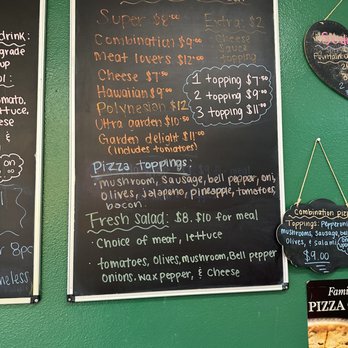 drink:
grade
up
ol :
omato,
ettuce,
ese
&
on
1.00
r 8pc
neless
Super $8.00
Extra: $2
Cheese
Sauce
topping
Combination $9.00
Meat lovers $12.00
Cheese $7.00
Hawaiian $9.00
Polynesian $12
Ultra garden $10.50
Garden delight $11.00
(includes tomatoes)
1 topping $7.50
2 topping $9.00
3 topping $11.00
Pizza toppings:
• mushroom, Sausage, bell pepper, oni,
olives, jalapeno, pineapple, tomatoes,
bacon.
Fresh Salad: $8. $10 for meal
• Choice of meat, lettuce
• tomatoes, olives, mushroom, Bell pepper
onions. wax pepper, & Cheese
Combination piz
Toppings: Pepperoni
mushrooms, Sausage, bell
Olives, & salami
$9.00
Fami
PIZZA